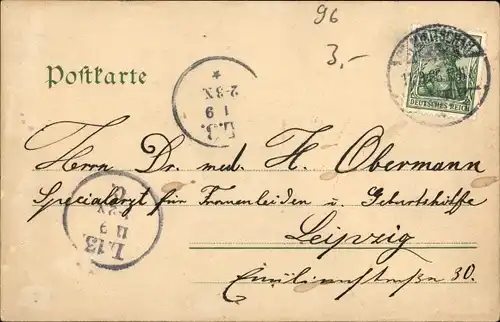 96
3,-
Postkarte
DEUTSCHES REICH
L.13.
1 9
2-3 X
Herrn Dr. med. H. Obermann
Specialarzt für Frauenleiden u. Geburtshülfe
L.13.
11 9
Leipzig
Emilienstraße 30.